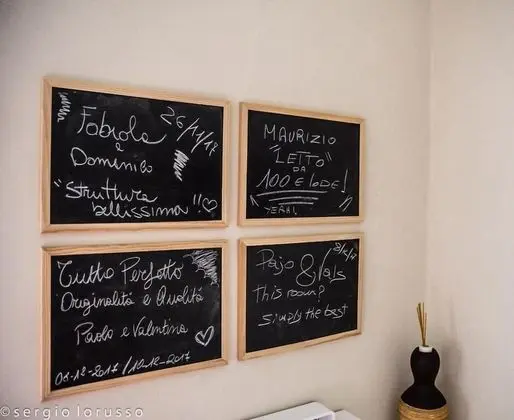 Fabiola
26/11/17
e
Domenico
"Struttura
bellissima"!!
MAURIZIO
"LETTO"
DA
100 E LODE!
YEAH!
Tutto Perfetto
Originalità e Qualità
Paolo e Valentina
08-12-2017/10-12-2017
Pajo & 
this room?
simply the best
©sergio lorusso